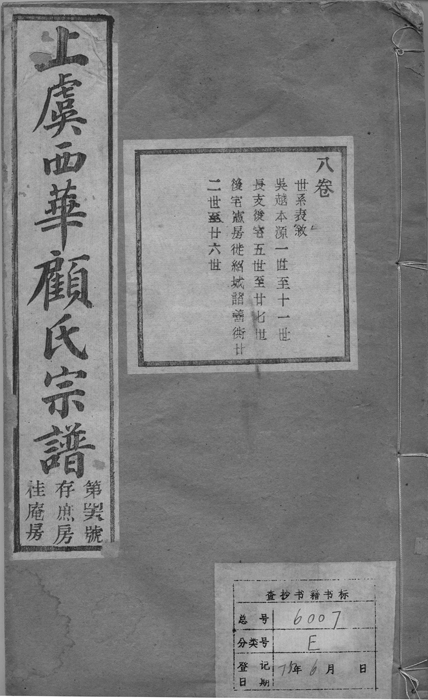 上虞西華顧氏宗譜
第 號
存庶房
桂庵房
八卷
世系表敘
吳越本源一世至十一世
長支後宅五世至廿七世
後宅憲房徙紹城諸善街廿
二世至廿六世
查抄书籍书标
总号 6007
分类号 E
登记日期 75年6月 日